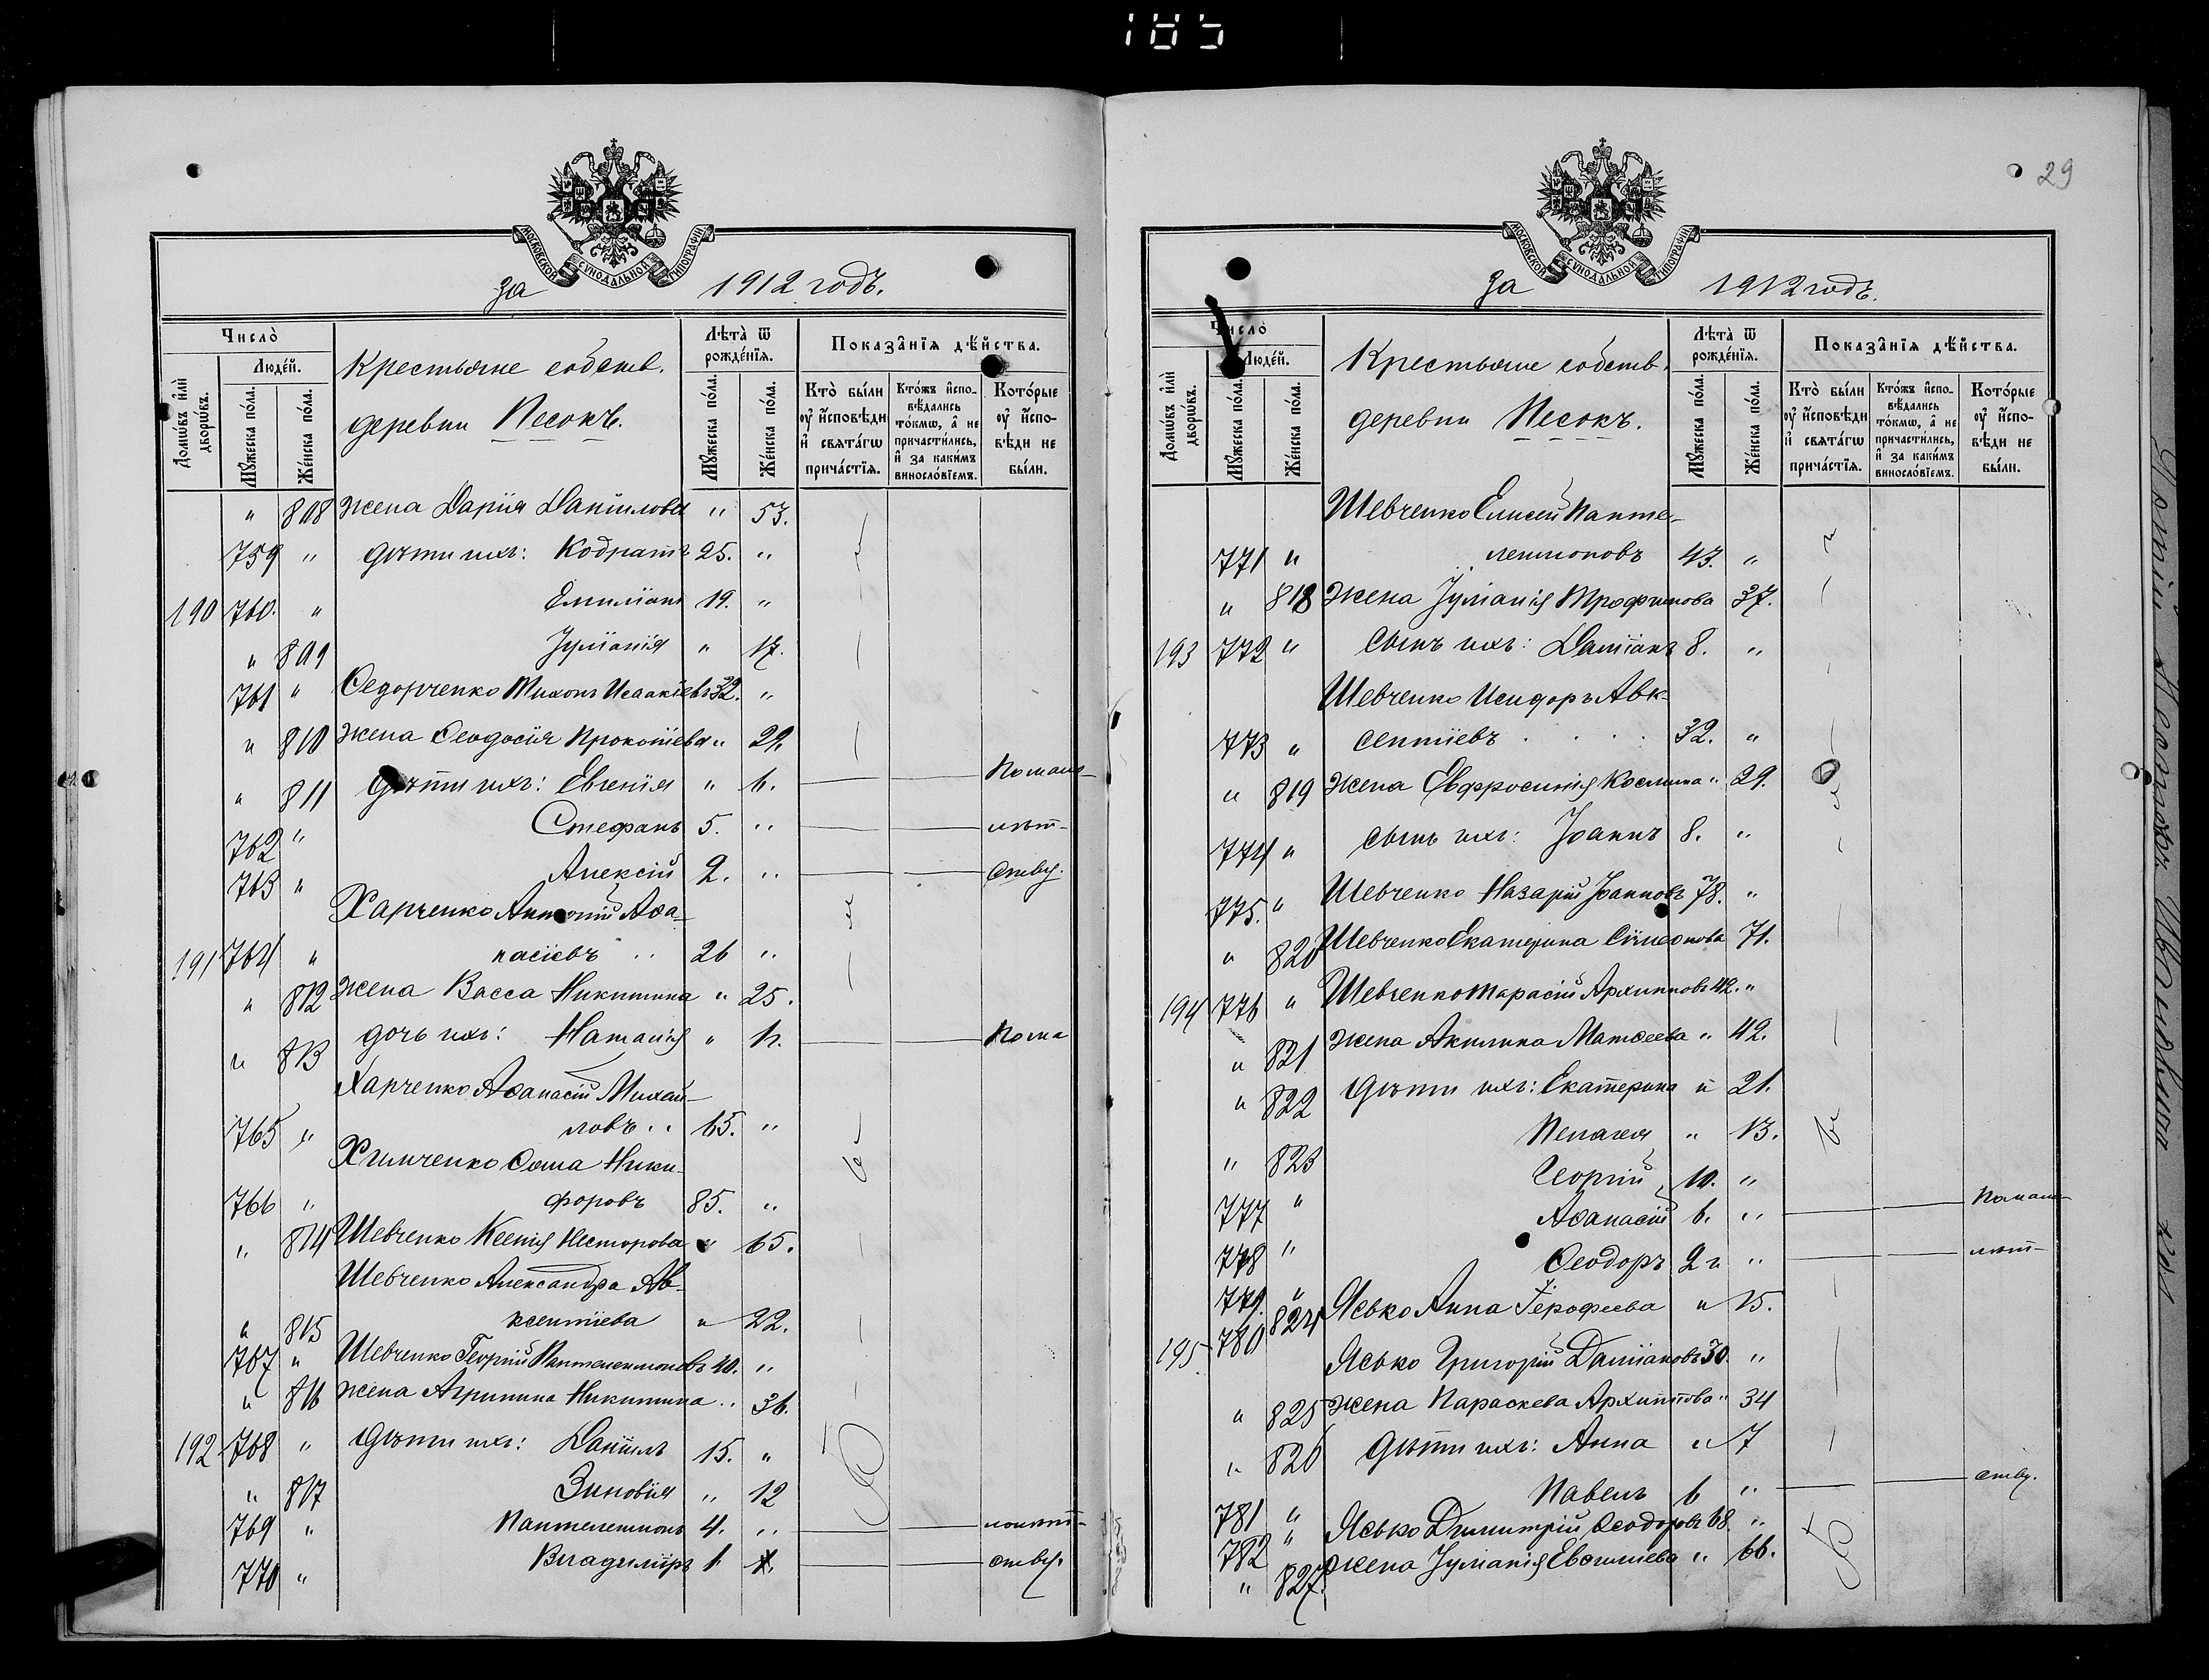 185
29
МОСКОВСКОЙ СѴНОДАЛЬНОЙ ТИПОГРАФІИ
за 1912 годъ.
Число̀
Домѡвъ и҆лѝ дворѡ́въ.
Люде́й.
Мꙋ́жеска по́ла.
Же́нска по́ла.
Крестьяне собств.
деревни Песокъ.
Лѣ́та ѿ рожде́нїѧ.
Мꙋ́жеска по́ла.
Же́нска по́ла.
Показа̑нїѧ дѣ́йства.
Кто̀ бы́ли ᲂу҆ и҆сповѣ́ди и҆ свѧта́гѡ прича́стїѧ.
Кто́жъ и҆спо-вѣ́дались то́кмѡ, а҆ не причасти́лись, и҆ за каки́мъ виносло́вїемъ.
Кото́рые ᲂу҆ и҆спо-вѣ́ди не бы́ли.
" 808 Жена Дарія Даніилова " 53.
759 " Дѣти ихъ: Кодратъ 25. "
190 760. " Емиліанъ 19. "
" 809 Іуліанія " 17.
761 " Ѳедорченко Тихонъ Исаакіевъ 32. "
" 810 Жена Ѳеодосія Прокопіева " 29.
" 811 Дѣти ихъ: Евгенія " 6. По мало-
762 " Стефанъ 5. " лѣт-
763 " Алексій 2. " ству.
Харченко Антоній Аѳа-
191 764 " насіевъ 26 "
" 812 Жена Васса Никитина " 25.
" 813 дочь ихъ: Наталія " По мало
Харченко Аѳанасій Михаи-
765 " ловъ 65. "
Химченко Ѳома Ники-
766 " форовъ 85. "
" 814 Шевченко Ксенія Несторова " 65.
Шевченко Александра Ав-
" 815 ксентіева " 22.
767 " Шевченко Георгій Пантелеимоновъ 40. "
" 816 Жена Агрипина Никитина " 36.
192 768 " Дѣти ихъ: Даніилъ 15. "
" 817 Зиновія " 12
769 " Пантелеимонъ 4. "
770 " Владиміръ 1 ству.
МОСКОВСКОЙ СѴНОДАЛЬНОЙ ТИПОГРАФІИ
за 1912 годъ.
Число̀
Домѡвъ и҆лѝ дворѡ́въ.
Люде́й.
Мꙋ́жеска по́ла.
Же́нска по́ла.
Крестьяне собств.
деревни Песокъ.
Лѣ́та ѿ рожде́нїѧ.
Мꙋ́жеска по́ла.
Же́нска по́ла.
Показа̑нїѧ дѣ́йства.
Кто̀ бы́ли ᲂу҆ и҆сповѣ́ди и҆ свѧта́гѡ прича́стїѧ.
Кто́жъ и҆спо-вѣ́дались то́кмѡ, а҆ не причасти́лись, и҆ за каки́мъ виносло́вїемъ.
Кото́рые ᲂу҆ и҆спо-вѣ́ди не бы́ли.
Шевченко Елисей Панте-
771 " леимоновъ 43. "
" 818 Жена Іуліанія Трофимова 37.
193 772 " Сынъ ихъ: Даміанъ 8. "
Шевченко Исидоръ Авк-
773 " сентіевъ 32. "
" 819 Жена Евфросинія Космина " 29.
774 " Сынъ ихъ: Іоаннъ 8. "
775. " Шевченко Назарій Іоанновъ 78. "
" 820 Шевченко Екатерина Сѵмеонова 71.
194 776 " Шевченко Тарасій Архипповъ 42. "
" 821 Жена Акилина Матѳеева " 42.
" 822 Дѣти ихъ: Екатерина " 21.
" 823 Пелагея " 13.
777 " Георгій 10. "
778 " Аѳанасій 6. " По мало-
779. " Ѳеодоръ 2 " лѣт-
824 Ясько Анна Іерофеева " 15.
195 780 Ясько Григорій Даміановъ 30. "
" 825 Жена Параскева Архиппова " 34
" 826 Дѣти ихъ: Анна " 7
781 " Павелъ 6 " ству.
782 " Ясько Димитрій Ѳеодоровъ 68. "
" 827. Жена Іуліанія Евѳиміева " 66.